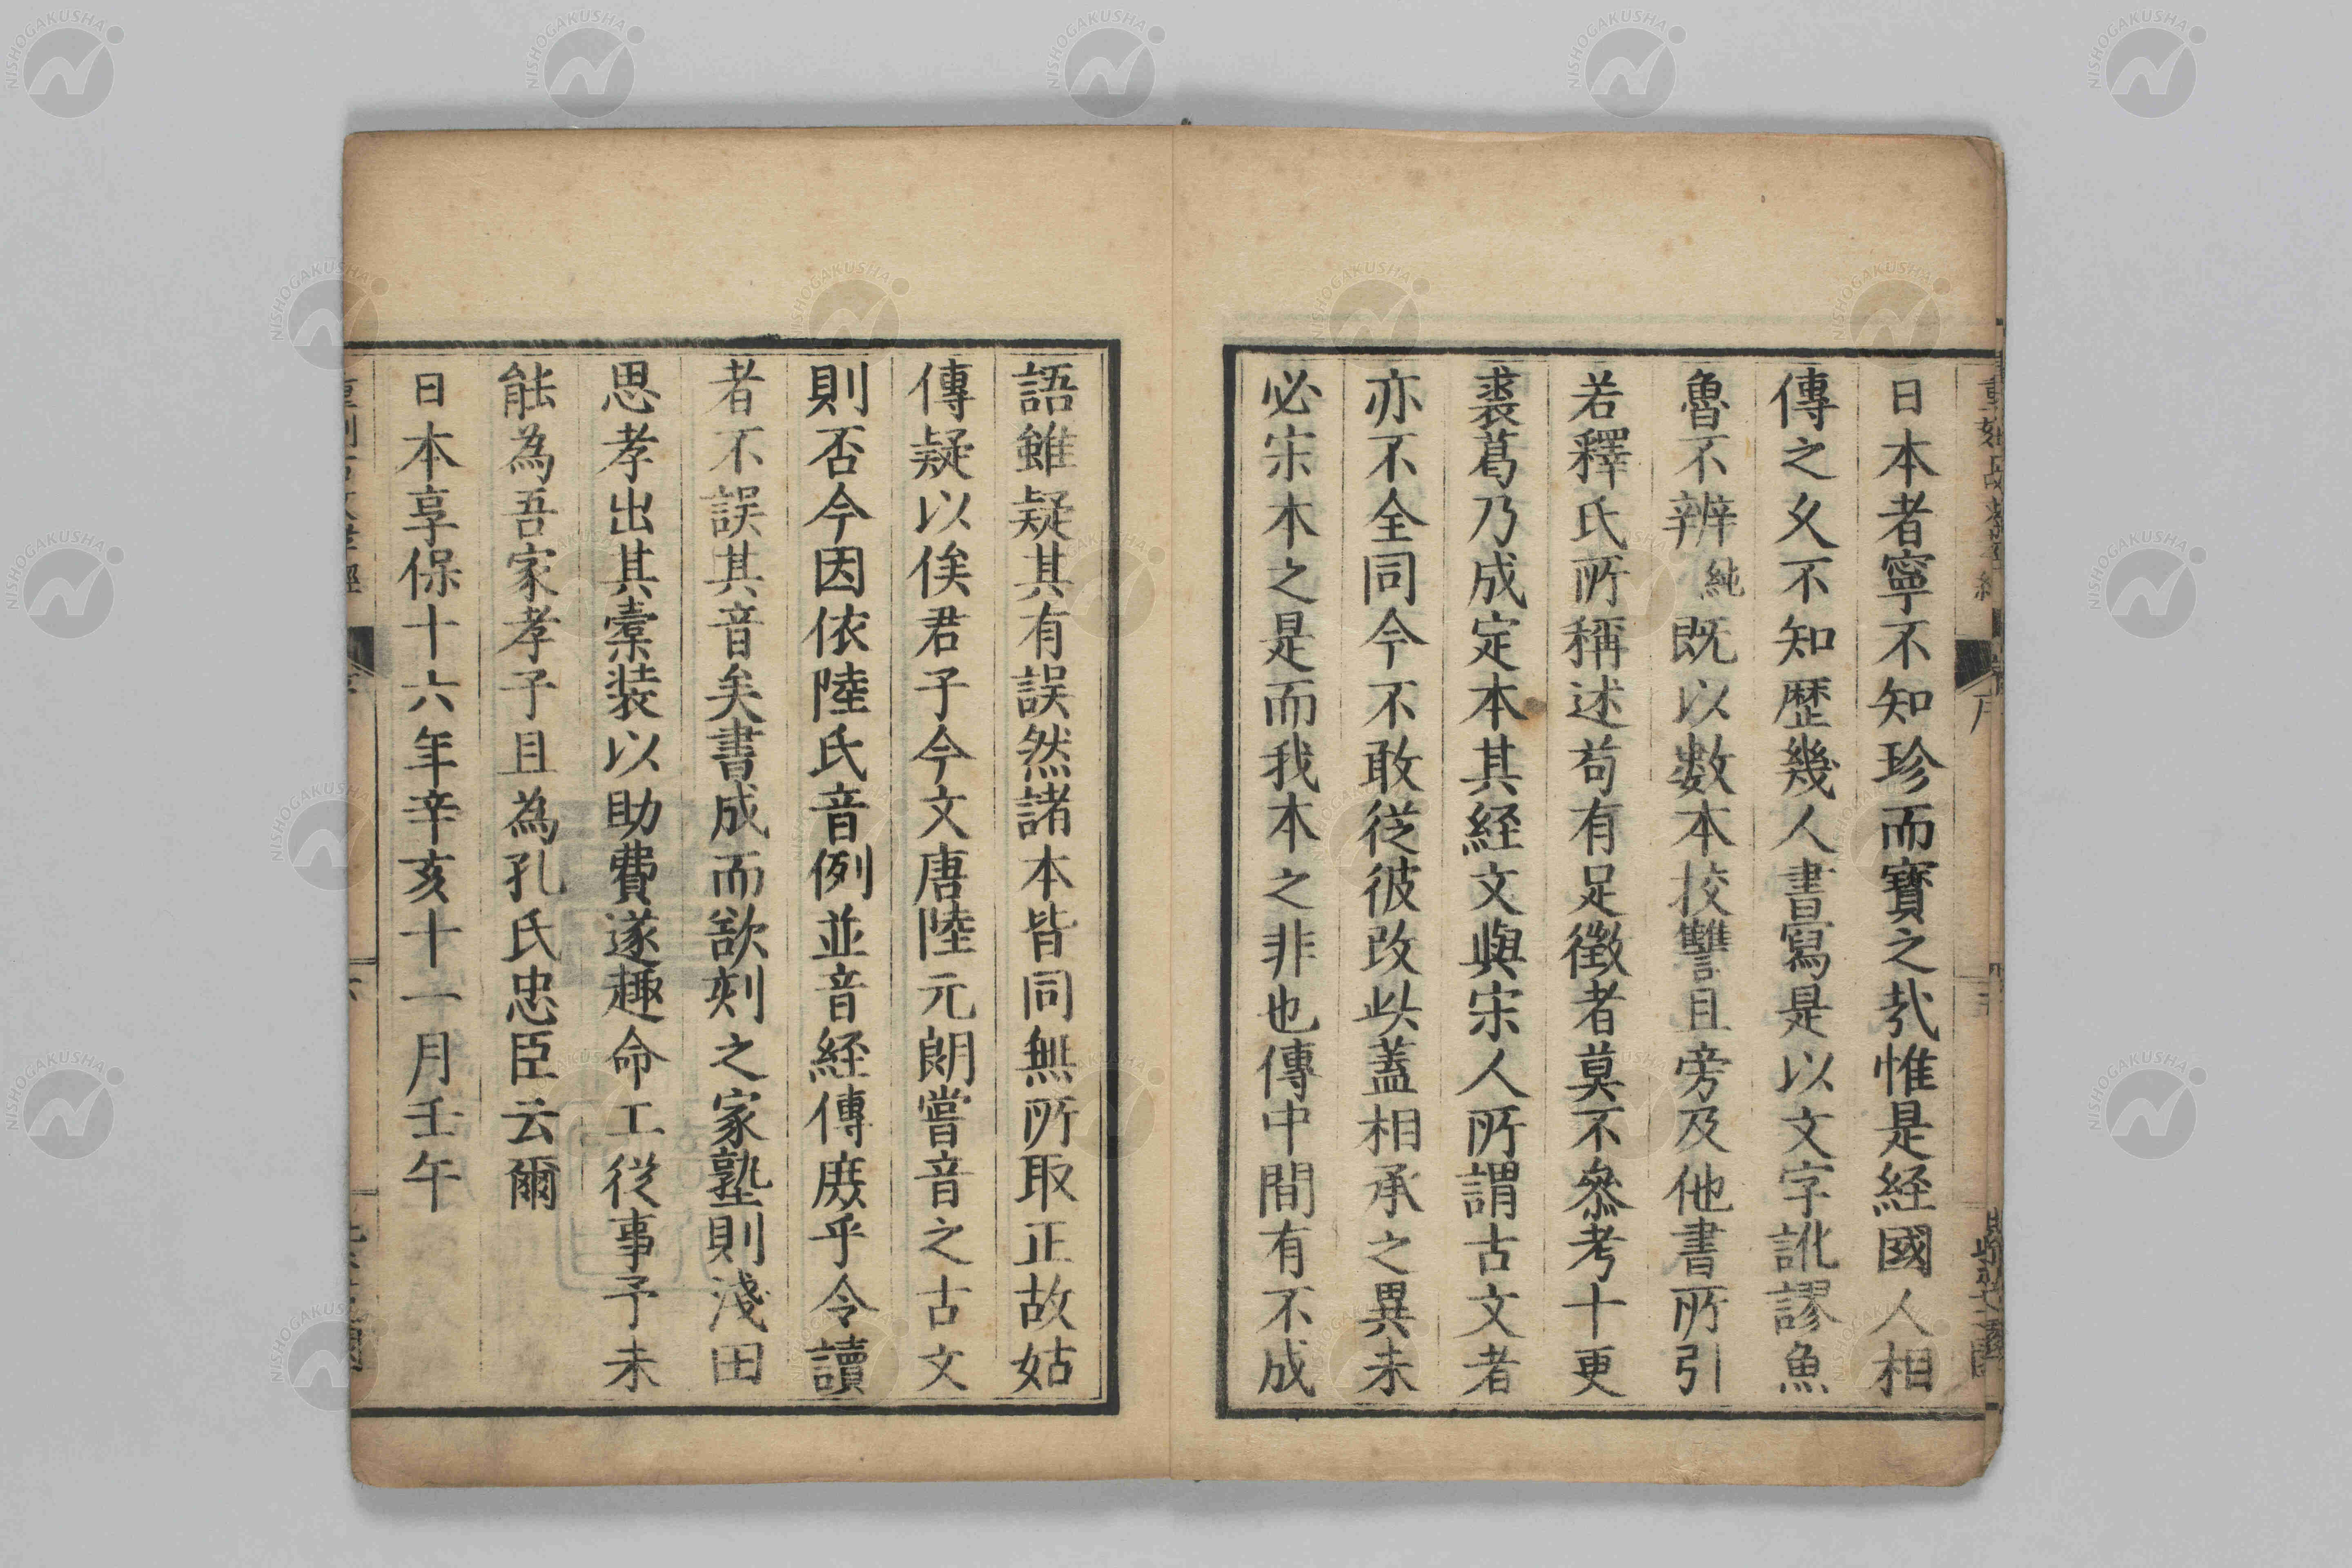 日本者寧不知珍而寶之㢤惟是経國人相
傳之久不知歴幾人書寫是以文字訛謬魚
魯不辨純既以數本校讐且旁及他書所引
若釋氏所稱述苟有足徴者莫不叅考十更
裘葛乃成定本其経文與宋人所謂古文者
亦不全同今不敢従彼改此蓋相承之異未
必宋本之是而我本之非也傳中間有不成
語雖疑其有誤然諸本皆同無所取正故姑
傳疑以俟君子今文唐陸元朗嘗音之古文
則否今因依陸氏音例並音経傳庶乎令讀
者不誤其音矣書成而欲刻之家塾則淺田
思孝出其橐装以助費遂趣命工従事予未
能為吾家孝子且為孔氏忠臣云爾
日本享保十六年辛亥十一月壬午
NISHOGAKUSHA